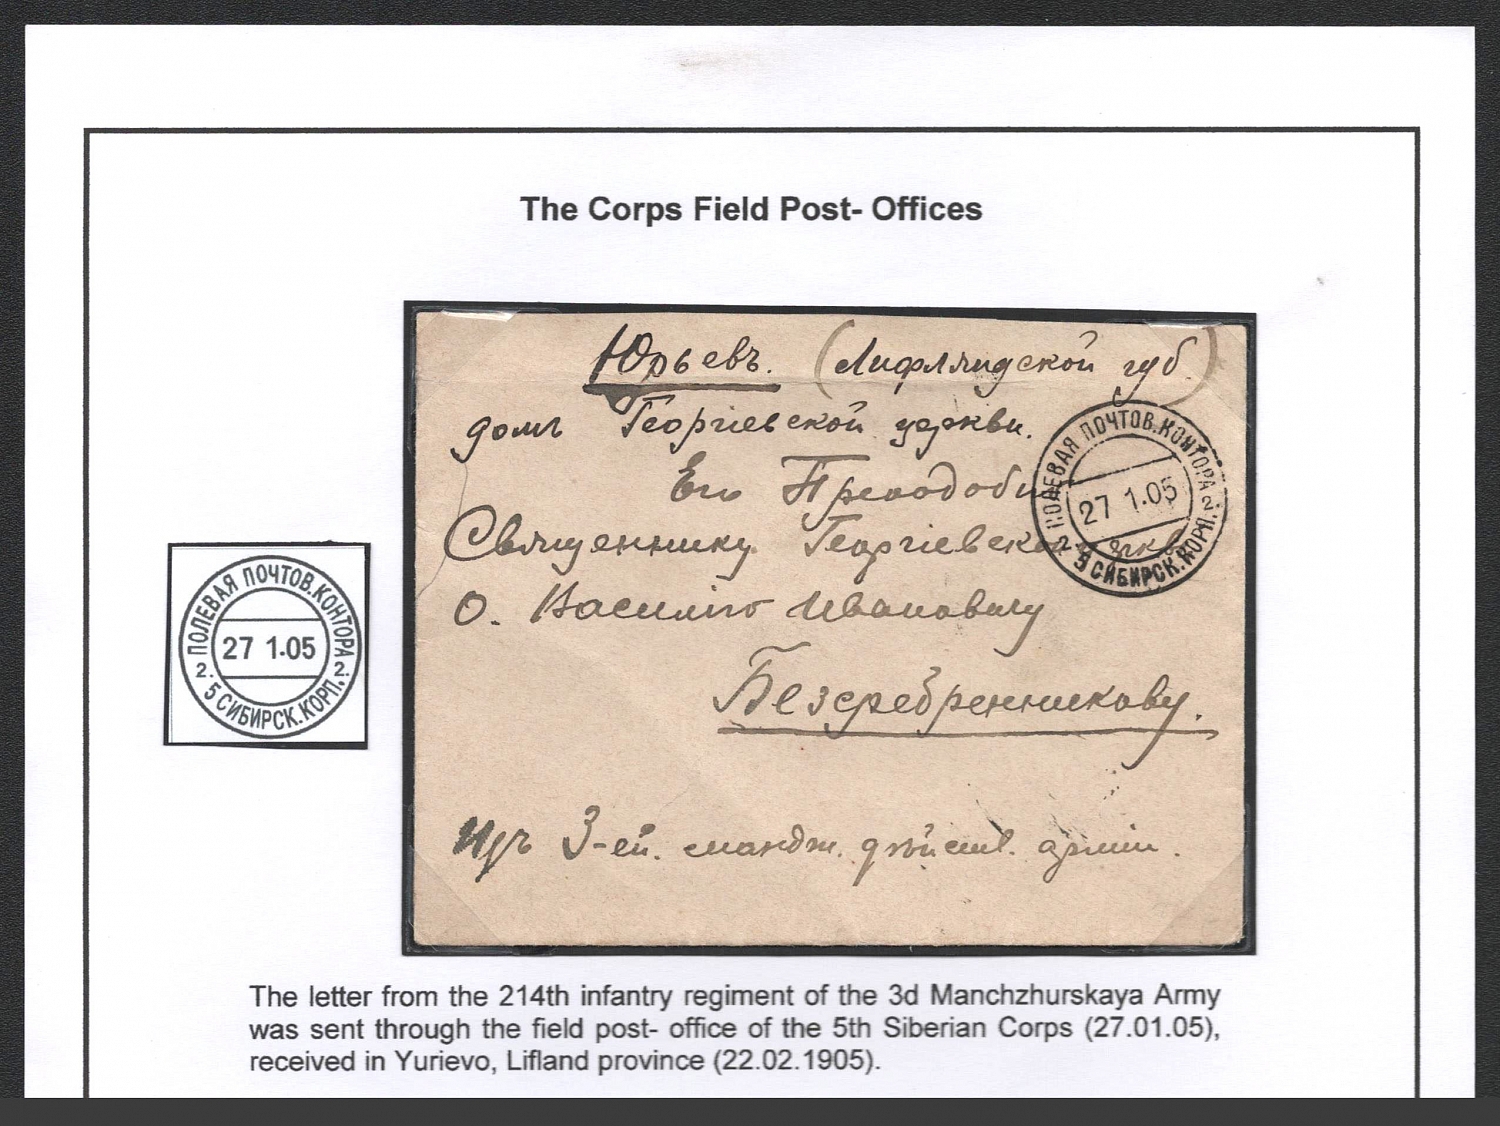 The Corps Field Post- Offices
Юрьевъ. (Лифляндской губ.)
домъ Георгіевской церкви.
Его Преподобію
Священнику Георгіевской церкви
О. Василію Ивановичу
Безсребренникову.
Изъ 3-ей. мандж. дѣйств. арміи.
ПОЛЕВАЯ ПОЧТОВ.КОНТОРА
27 1.05
2 5 СИБИРСК.КОРП. 2
ПОЛЕВАЯ ПОЧТОВ.КОНТОРА
27 1.05
2 5 СИБИРСК.КОРП. 2
The letter from the 214th infantry regiment of the 3d Manchzhurskaya Army
was sent through the field post- office of the 5th Siberian Corps (27.01.05),
received in Yurievo, Lifland province (22.02.1905).